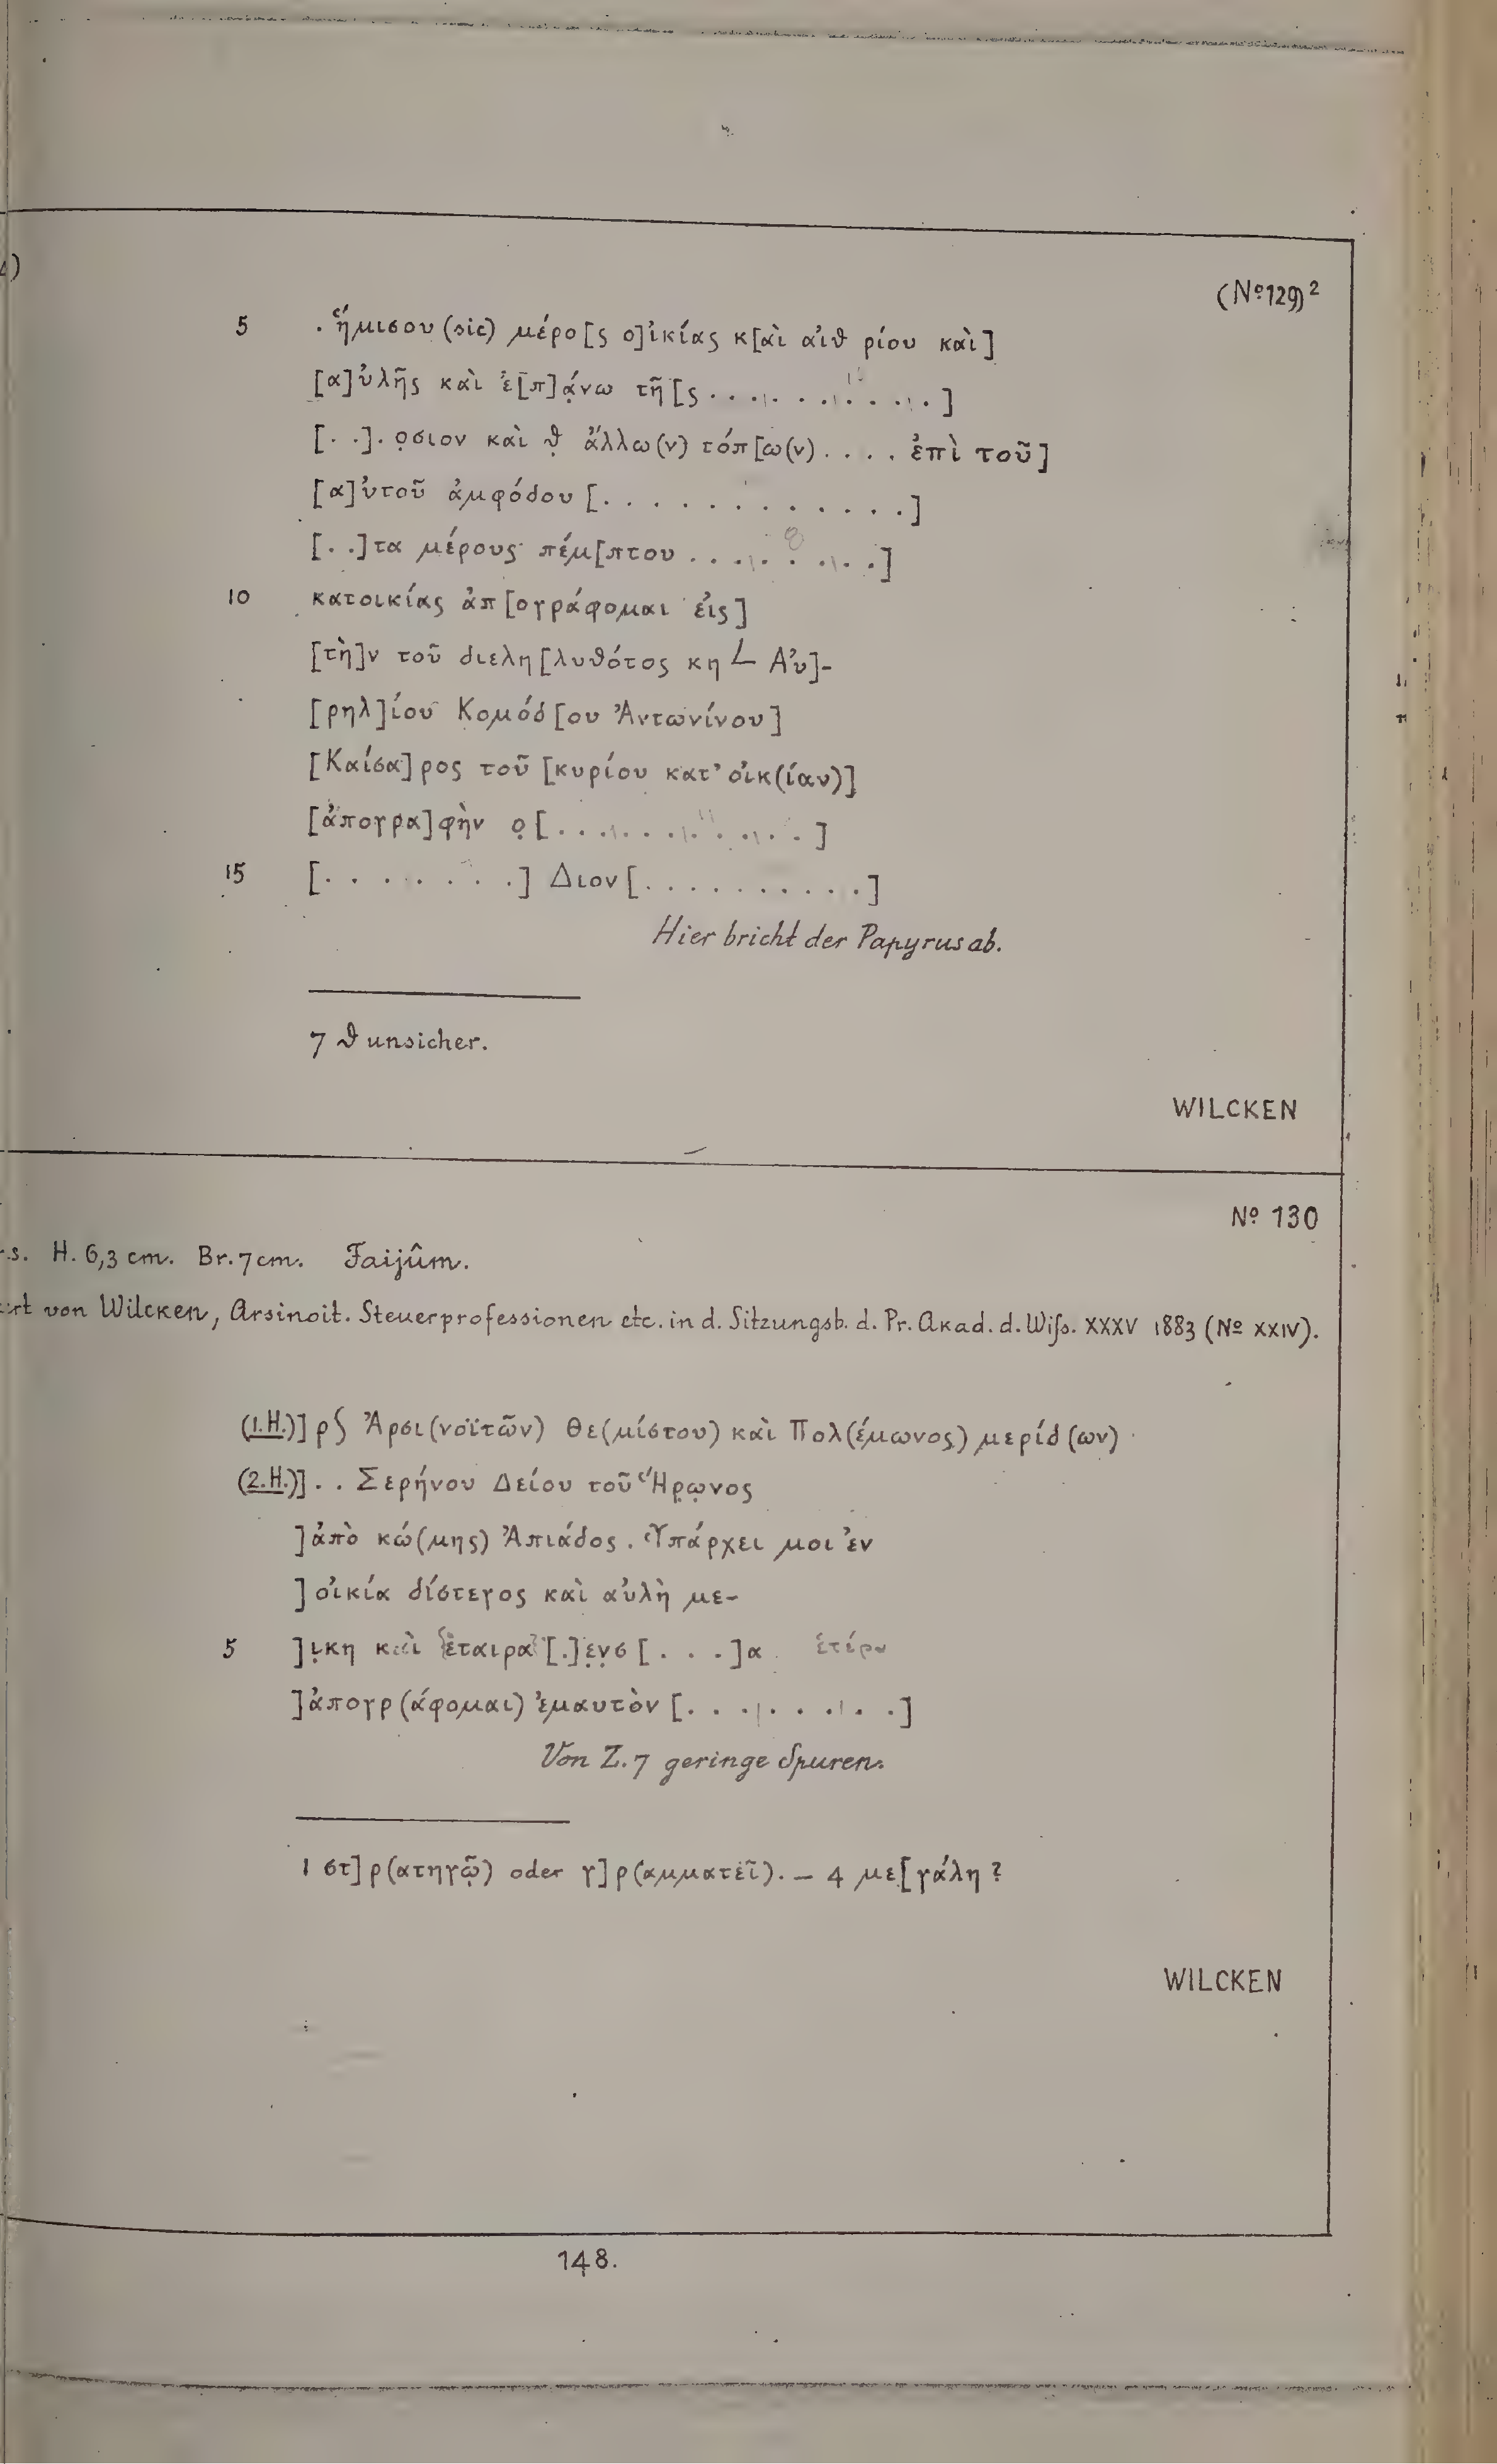 (№ 129)²
5 . ἥμισου (sic) μέρο[ς ο]ἰκίας κ[αὶ αἰθρίου καὶ]
[α]ὐλῆς καὶ ἐ[π]ά̣νω τῆ[ς . . . . . . . . . .]
[. .]. ο̣σιον καὶ θ̣ ἄλλω(ν) τόπ[ω(ν) . . . . ἐπὶ τοῦ]
[α]ὐτοῦ ἀμφόδου [. . . . . . . . . . . . .]
[. .]τα μέρους πέμ[πτου . . . . . . . .]
10 κατοικίας ἀπ[ογράφομαι εἰς]
[τὴ]ν τοῦ διελη[λυθότος κη L Αὐ]-
[ρηλ]ίου Κομόδ[ου Ἀντωνίνου]
[Καίσα]ρος τοῦ [κυρίου κατ' οἰκ(ίαν)]
[ἀπογρα]φὴν ο̣[. . . . . . . . . . .]
15 [. . . . . . . .] Διον[. . . . . . . . . .]
Hier bricht der Papyrus ab.
7 θ unsicher.
WILCKEN
№ 130
s. H. 6,3 cm. Br. 7 cm. Faijûm.
von Wilcken, Arsinoit. Steuerprofessionen etc. in d. Sitzungsb. d. Pr. Akad. d. Wiſs. XXXV 1883 (№ XXIV).
(1.H.)] ρ⟆ Ἀρσι(νοϊτῶν) Θε(μίστου) καὶ Πολ(έμωνος) μερίδ(ων)
(2.H.)] . . Σερήνου Δείου τοῦ Ἥρ̣ω̣νος
]ἀπὸ κώ(μης) Ἀπιάδος. Ὑπάρχει μοι ἐν
] οἰκία δίστεγος καὶ αὐλὴ με-
5 ]ι̣κη καὶ ἑταιρα [.]ε̣ν̣σ[. . .]α
]ἀπογρ(άφομαι) ἐμαυτὸν [. . . . . . . .]
Von Z. 7 geringe Spuren.
1 στ]ρ(ατηγῷ) oder γ]ρ(αμματεῖ). — 4 με[γάλη?
WILCKEN
148.